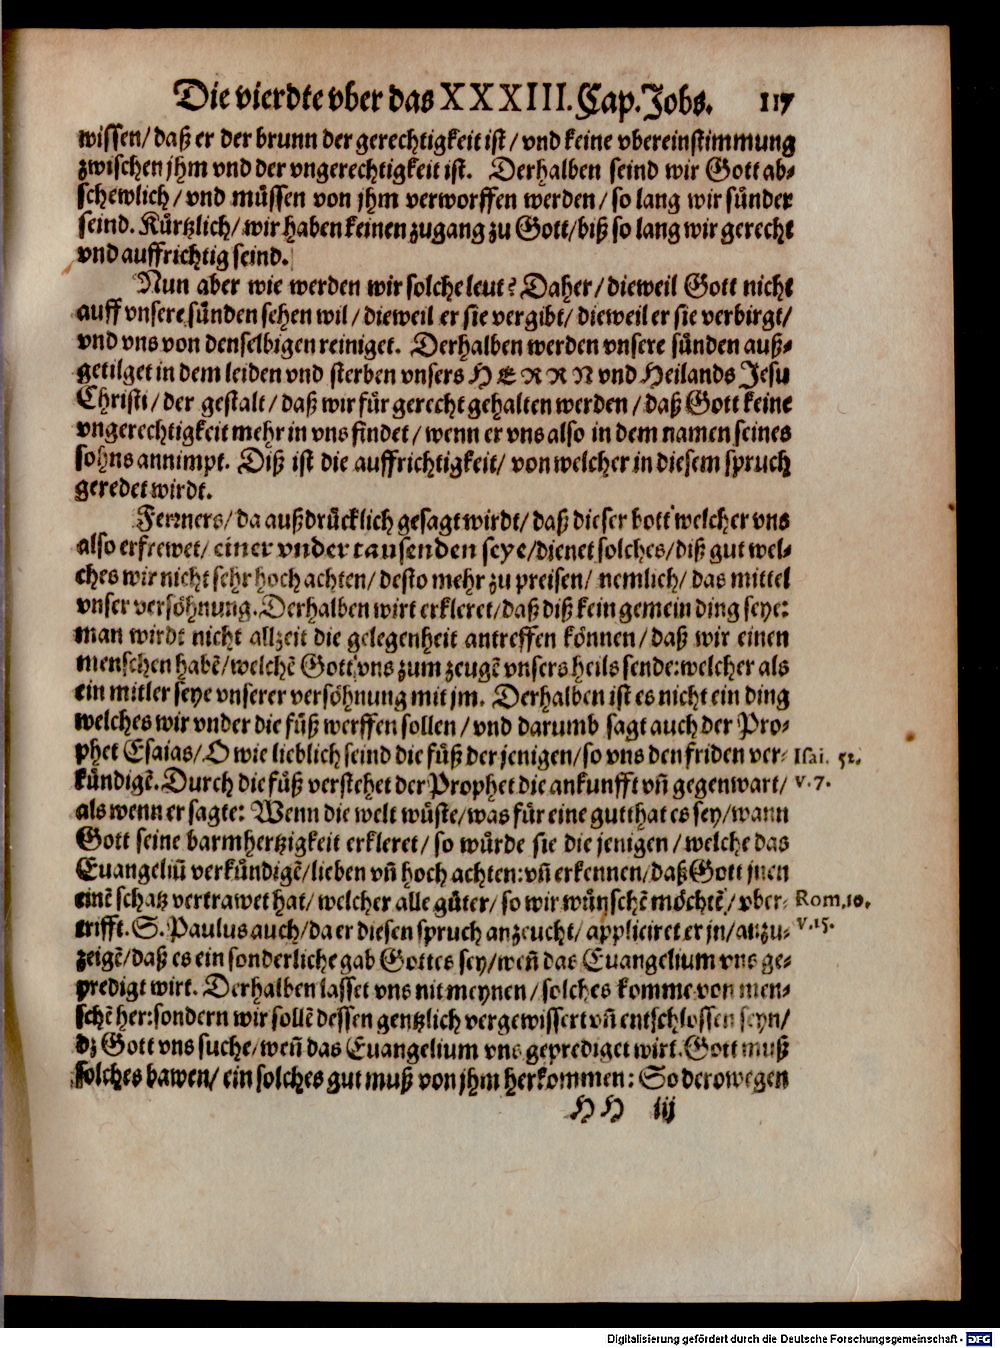 Die vierdte vber das XXXIII. Cap. Jobs. 117
wissen/ daß er der brunn der gerechtigkeit ist/ vnd keine vbereinstimmung
zwischen jhm vnd der vngerechtigkeit ist. Derhalben seind wir Gott ab-
schewlich/ vnd müssen von jhm verworffen werden/ so lang wir sünder
seind. Kürtzlich/ wir haben keinen zugang zu Gott/ biß so lang wir gerecht
vnd auffrichtig seind.
Nun aber wie werden wir solche leut? Daher/ dieweil Gott nicht
auff vnsere sünden sehen wil/ dieweil er sie vergibt/ dieweil er sie verbirgt/
vnd vns von denselbigen reiniget. Derhalben werden vnsere sünden auß-
getilget in dem leiden vnd sterben vnsers HERRN vnd Heilands Jesu
Christi/ der gestalt/ daß wir für gerecht gehalten werden/ daß Gott keine
vngerechtigkeit mehr in vns findet/ wenn er vns also in dem namen seines
sohns annimpt. Diß ist die auffrichtigkeit/ von welcher in diesem spruch
geredet wirdt.
Ferrners/ da außdrücklich gesagt wirdt/ daß dieser bott welcher vns
also erfrewet/ einer vnder tausenden seye/ dienet solches/ diß gut wel-
ches wir nicht sehr hoch achten/ desto mehr zu preisen/ nemlich/ das mittel
vnser versöhnung. Derhalben wirt erkleret/ daß diß kein gemein ding seye:
man wirdt nicht allzeit die gelegenheit antreffen können/ daß wir einen
menschen habē/ welchē Gott vns zum zeugē vnsers heils sende: welcher als
ein mitler seye vnserer versöhnung mit jm. Derhalben ist es nicht ein ding
welches wir vnder die füß werffen sollen/ vnd darumb sagt auch der Pro-
phet Esaias/ O wie lieblich seind die füß der jenigen/ so vns den friden ver- Isai. 52.
kündigē. Durch die füß verstehet der Prophet die ankunfft vn̄ gegenwart/ v. 7.
als wenn er sagte: Wenn die welt wüste/ was für eine gutthat es sey/ wann
Gott seine barmhertzigkeit erkleret/ so würde sie die jenigen/ welche das
Euangeliū verkündigē/ lieben vn̄ hoch achten: vn̄ erkennen/ daß Gott jnen
einē schatz vertrawet hat/ welcher alle güter/ so wir wünschē möchtē/ vber- Rom. 10.
trifft. S. Paulus auch/ da er diesen spruch anzeucht/ appliciret er jn/ anzu- v. 15.
zeigē/ daß es ein sonderliche gab Gottes sey/ wen̄ das Euangelium vns ge-
predigt wirt. Derhalben lasset vns nit meynen/ solches komme von men-
schē her: sondern wir sollē dessen gentzlich vergewissert vn̄ entschlossen seyn/
dz Gott vns suche/ wen̄ das Euangelium vns geprediget wirt. Gott muß
solches bawen/ ein solches gut muß von jhm herkommen: So derowegen
HH iij
Digitalisierung gefördert durch die Deutsche Forschungsgemeinschaft - DFG